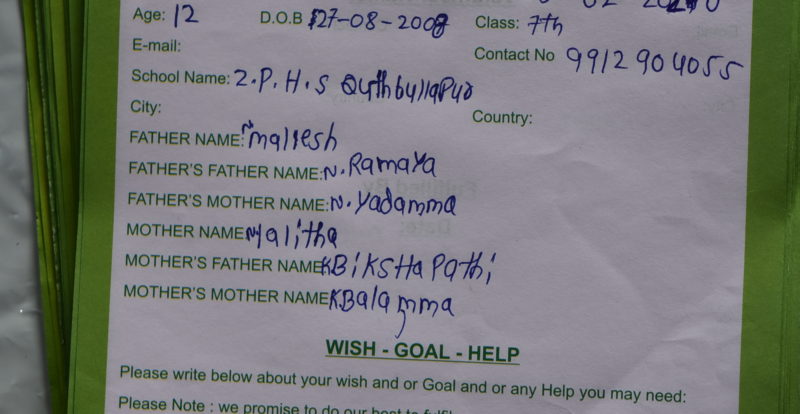 Age: 12 D.O.B 27-08-2008 Class: 7th
E-mail: Contact No 9912904055
School Name: Z.P.H.S Quthbullapur
City: Country:
FATHER NAME: N malresh
FATHER'S FATHER NAME: N. Ramaya
FATHER'S MOTHER NAME: N. Yadamma
MOTHER NAME lalitha
MOTHER'S FATHER NAME K BiKSHaPathi
MOTHER'S MOTHER NAME K Balamma
WISH - GOAL - HELP
Please write below about your wish and or Goal and or any Help you may need:
Please Note : we promise to do our best to